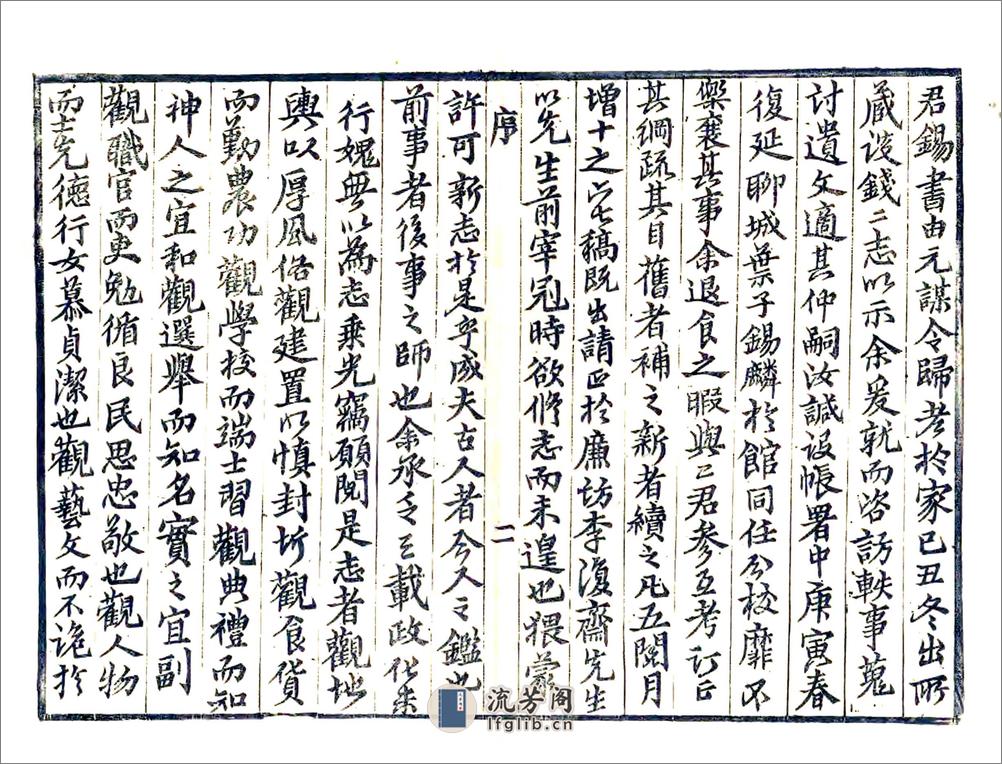 君錫書由元謀令歸老於家已丑冬出所
藏淩錢二志以示余爰就而咨訪軼事蒐
討遺文適其仲嗣汝誠設帳署中庚寅春
復延聊城葉子錫麟於館同任公校靡不
樂襄其事余退食之暇與二君參互考訂
其綱疏其目舊者補之新者續之凡五閱月
增十之六七稿既出請正於廉訪李復齋先生
以先生前宰冠時欲修志而未遑也猥蒙
序
二
許可新志於是乎成夫古人者今人之鑑也
前事者後事之師也余承乏三載政化未
行媿無以為志乘光竊願閱是志者觀地
輿以厚風俗觀建置以慎封圻觀食貨
而勤農功觀學校而端士習觀典禮而知
神人之宜和觀選舉而知名實之宜副
觀職官而吏勉循良民思忠敬也觀人物
而士先德行女慕貞潔也觀藝文而不詭於
流芳阁
lfglib.cn